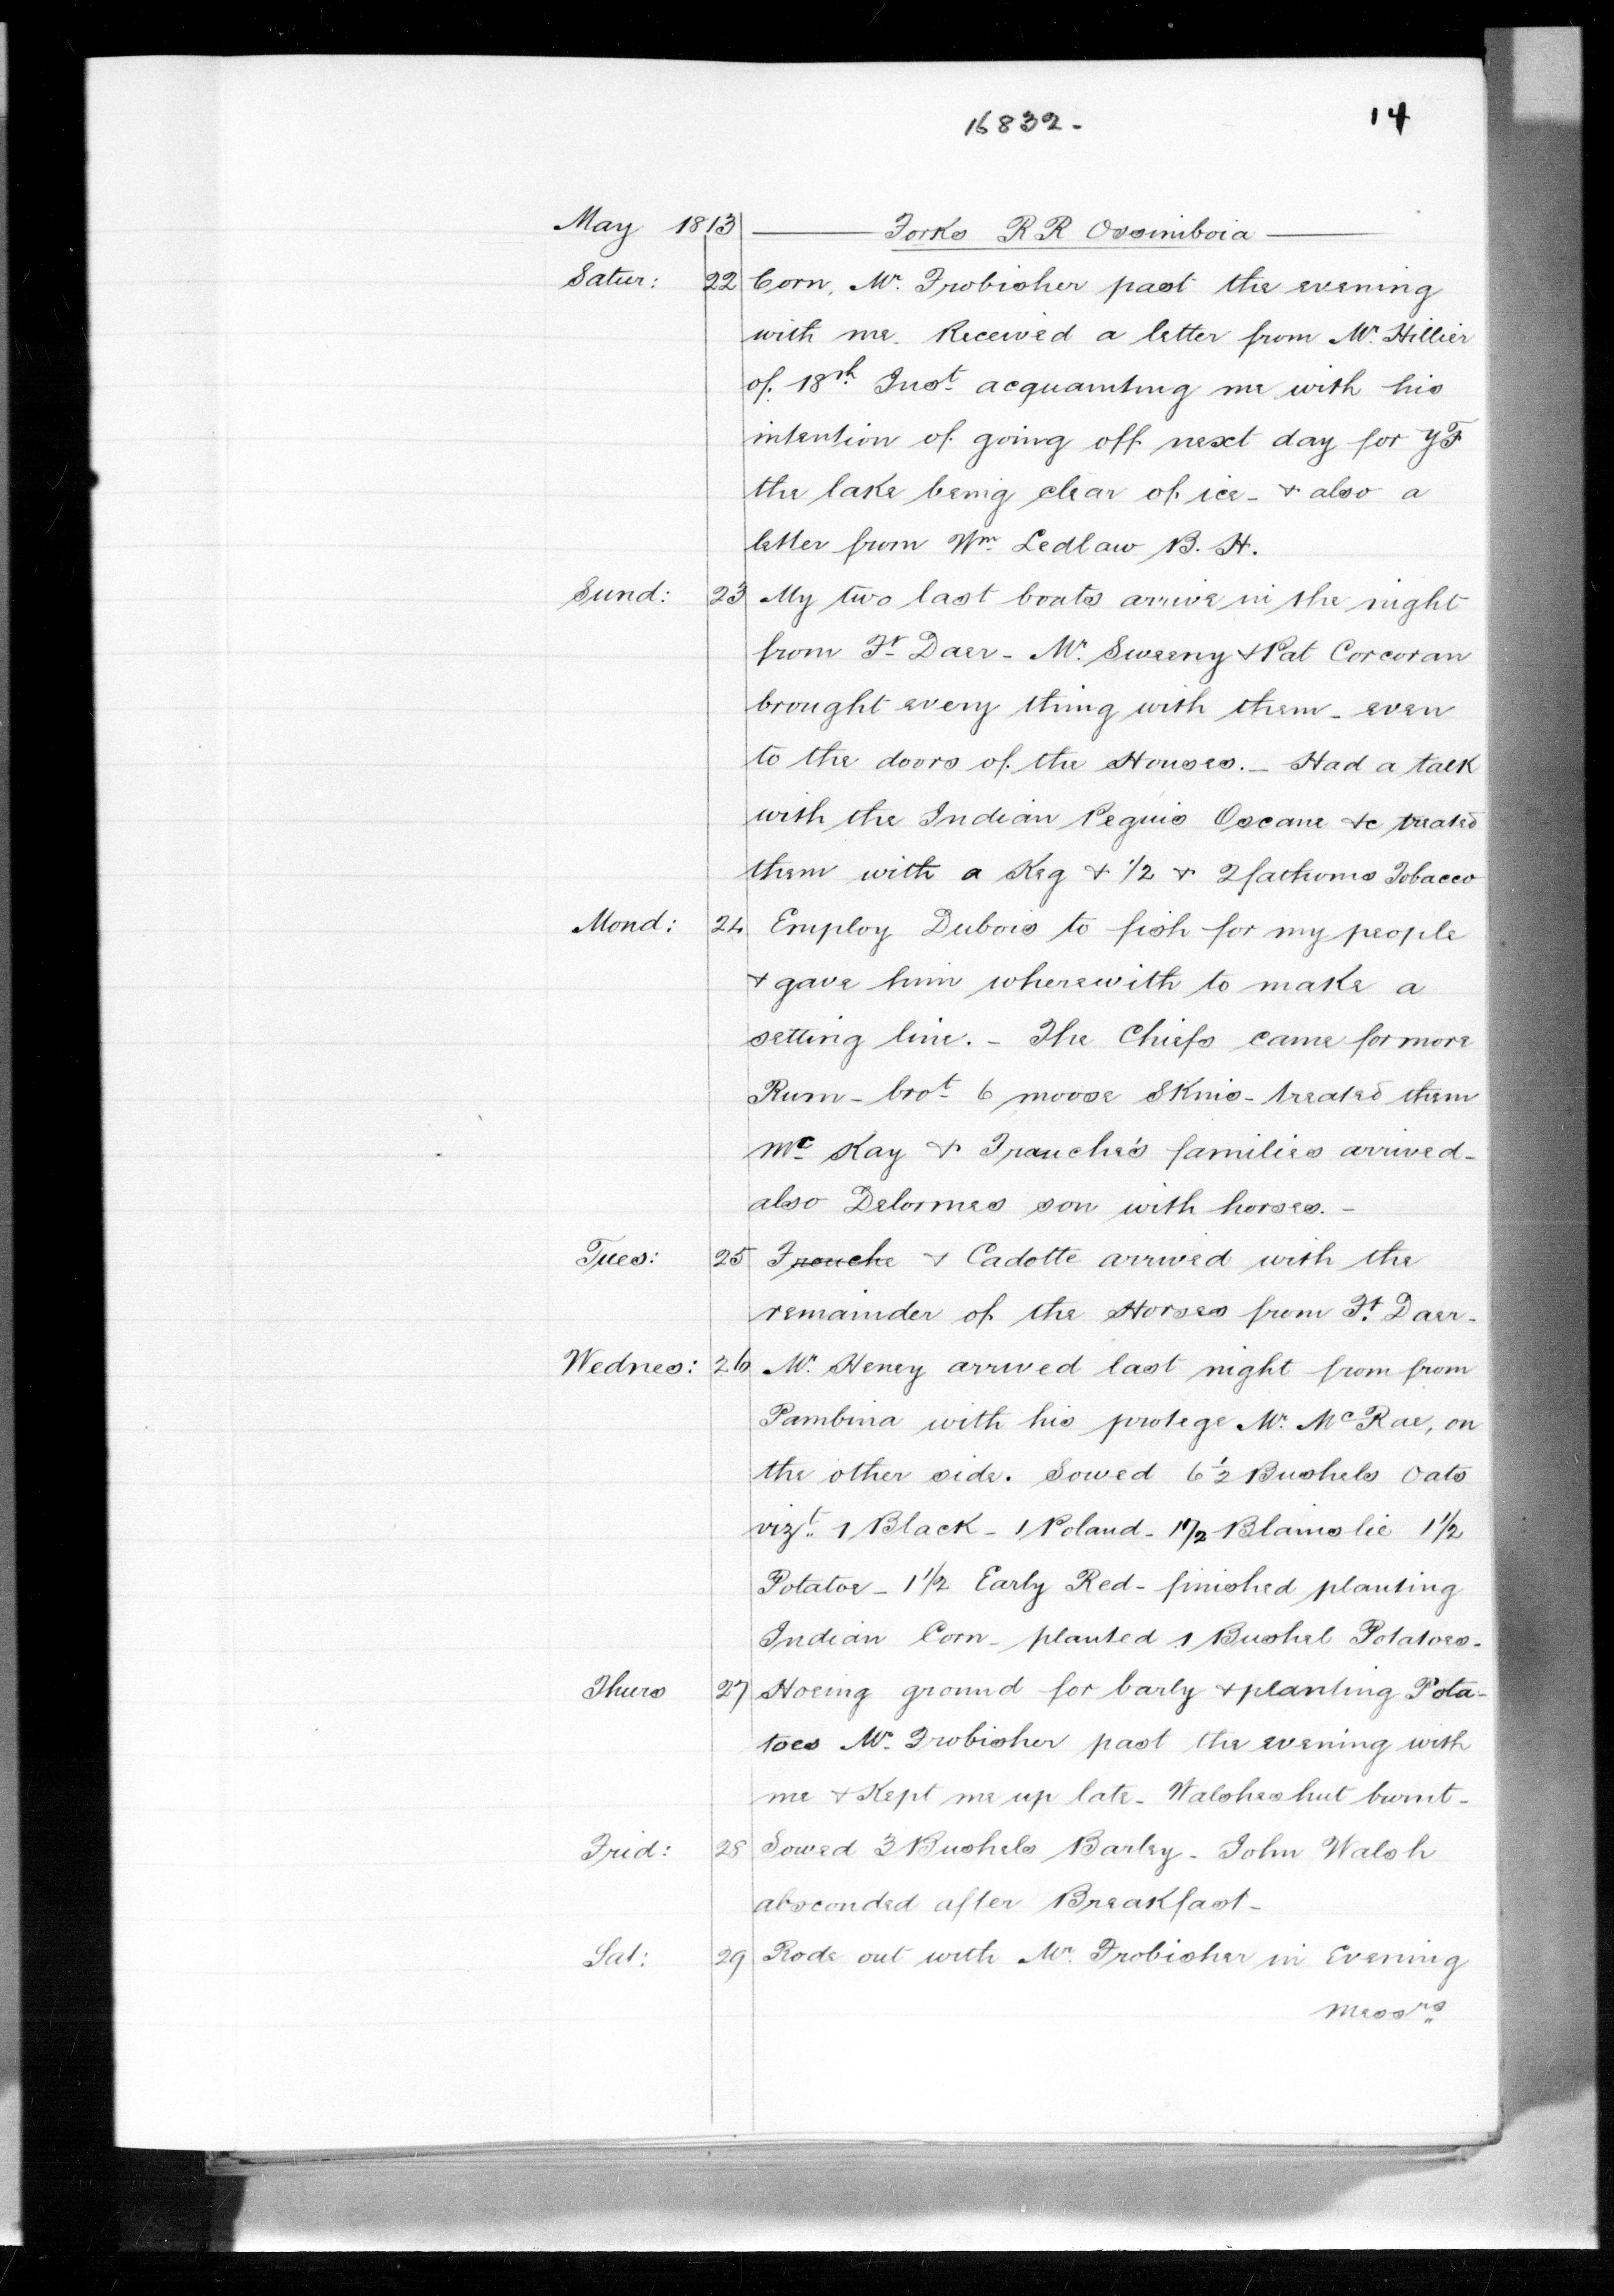 16832-
14
May 1813 Forks R R Ossiniboia
Satur: 22 Corn, Mr. Frobisher past the evening
with me. Received a letter from Mr. Hillier
of 18th Inst. acquainting me with his
intention of going off next day for YF
the lake being clear of ice - & also a
letter from Wm. Ledlaw B. H.
Sund: 23 My two last boats arrive in the night
from Ft. Daer - Mr. Sweeny & Pat Corcoran
brought every thing with them - even
to the doors of the Houses. - Had a talk
with the Indian Peguis Oscane &c treated
them with a Keg & 1/2 & 2 fathoms Tobacco
Mond: 24 Employ Dubois to fish for my people
& gave him wherewith to make a
setting line. - The Chiefs came for more
Rum - brot. 6 moose Skins - treated them
Mc. Kay & Franche's families arrived -
also Delormes son with horses. -
Tues: 25 Frouche & Cadotte arrived with the
remainder of the Horses from Ft. Daer -
Wednes: 26 Mr. Heney arrived last night from from
Pambina with his protege Mr. McRae, on
the other side. Sowed 6 1/2 Bushels Oats
vizt. 1 Black - 1 Poland - 1 1/2 Blainslie 1 1/2
Potatoe - 1 1/2 Early Red - finished planting
Indian Corn - planted 1 Bushel Potatoes -
Thurs 27 Hoeing ground for barly & planting Pota-
toes Mr. Frobisher past the evening with
me & Kept me up late - Walshes hut burnt -
Frid: 28 Sowed 3 Bushels Barley - John Walsh
absconded after Breakfast -
Sat: 29 Rode out with Mr. Frobisher in Evening
Messrs.